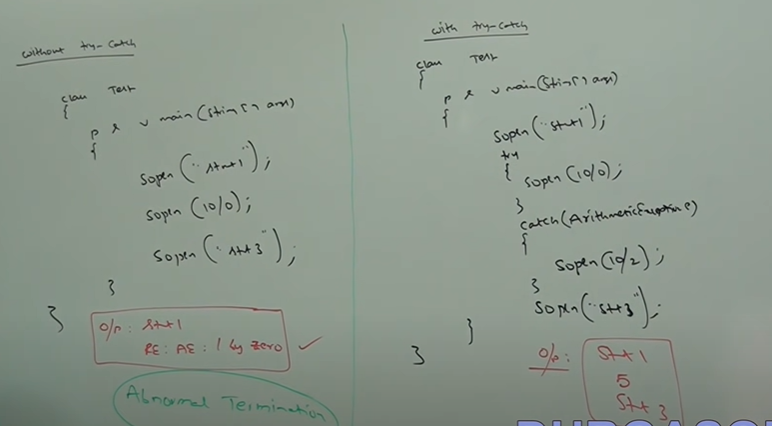 without try-catch
class Test
{
p s v main(String[] args)
{
Sopln("stmt1");
Sopln(10/0);
Sopln("stt3");
}
}
o/p: stt1
RE: AE: / by zero
Abnormal Termination
with try-catch
class Test
{
p s v main(String[] args)
{
Sopln("stmt1");
try
{
Sopln(10/0);
}
catch(ArithmeticException e)
{
Sopln(10/2);
}
Sopln("stt3");
}
}
o/p:
stt1
5
stt3